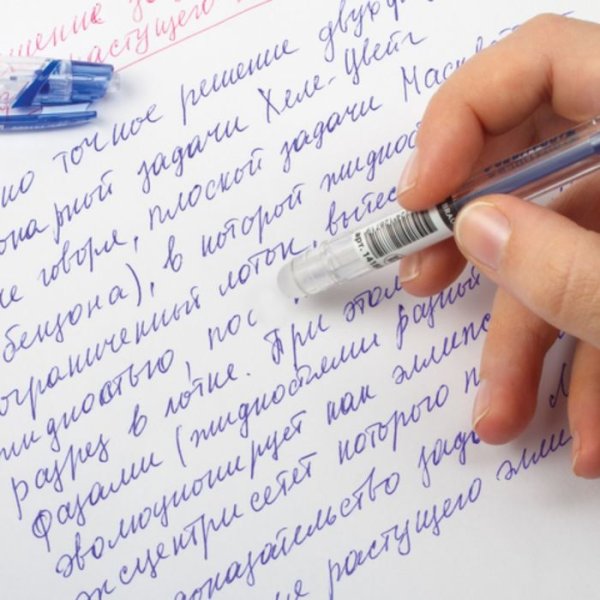 решение за
растущего
но точное решение двух
онарной задачи Хеле-Цвейг
не говоря, плоской задачи Маск
бензона), в которой жидкос
ограниченный лоток, вытес
жидкостью, пос
разрез в лотке. При этом
фазами (жидкостями разной
эволюционирует как эллипс
эксцентриситет которого п
доказательство зада
растущего элли
арт. 141